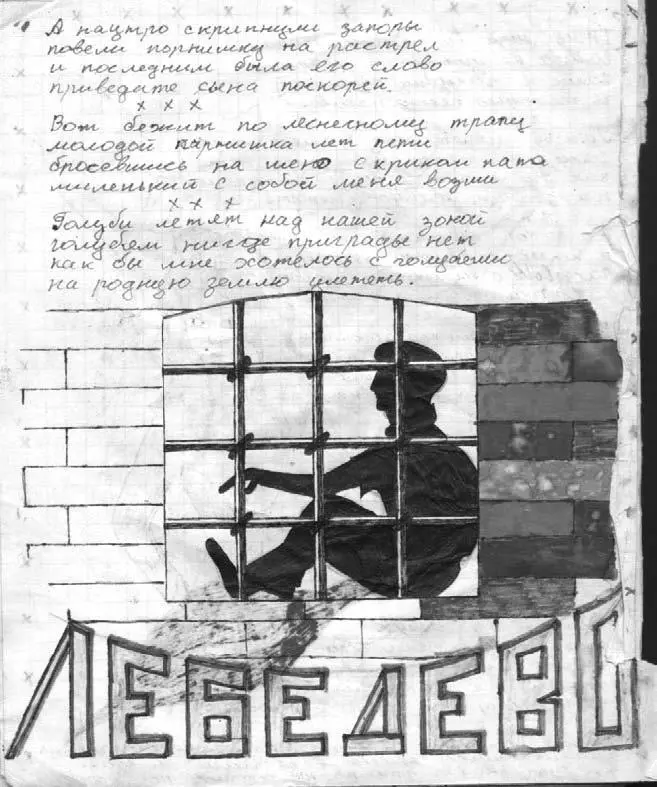 А нацтро скрипнули запоры
повели порнишку на растрел
и последним была его слово
приведите сына поскорей.
х х х
Вот бежит по леснесному трапу
молодой парнишка лет пяти
бросевшись на шею с криком папа
миленький с собой меня возми
х х х
Голуби летят над нашей зоной
голубем нигде приграды нет
как бы мне хотелось с голубеми
на родную землю улететь.
ЛЕБЕДЕВО